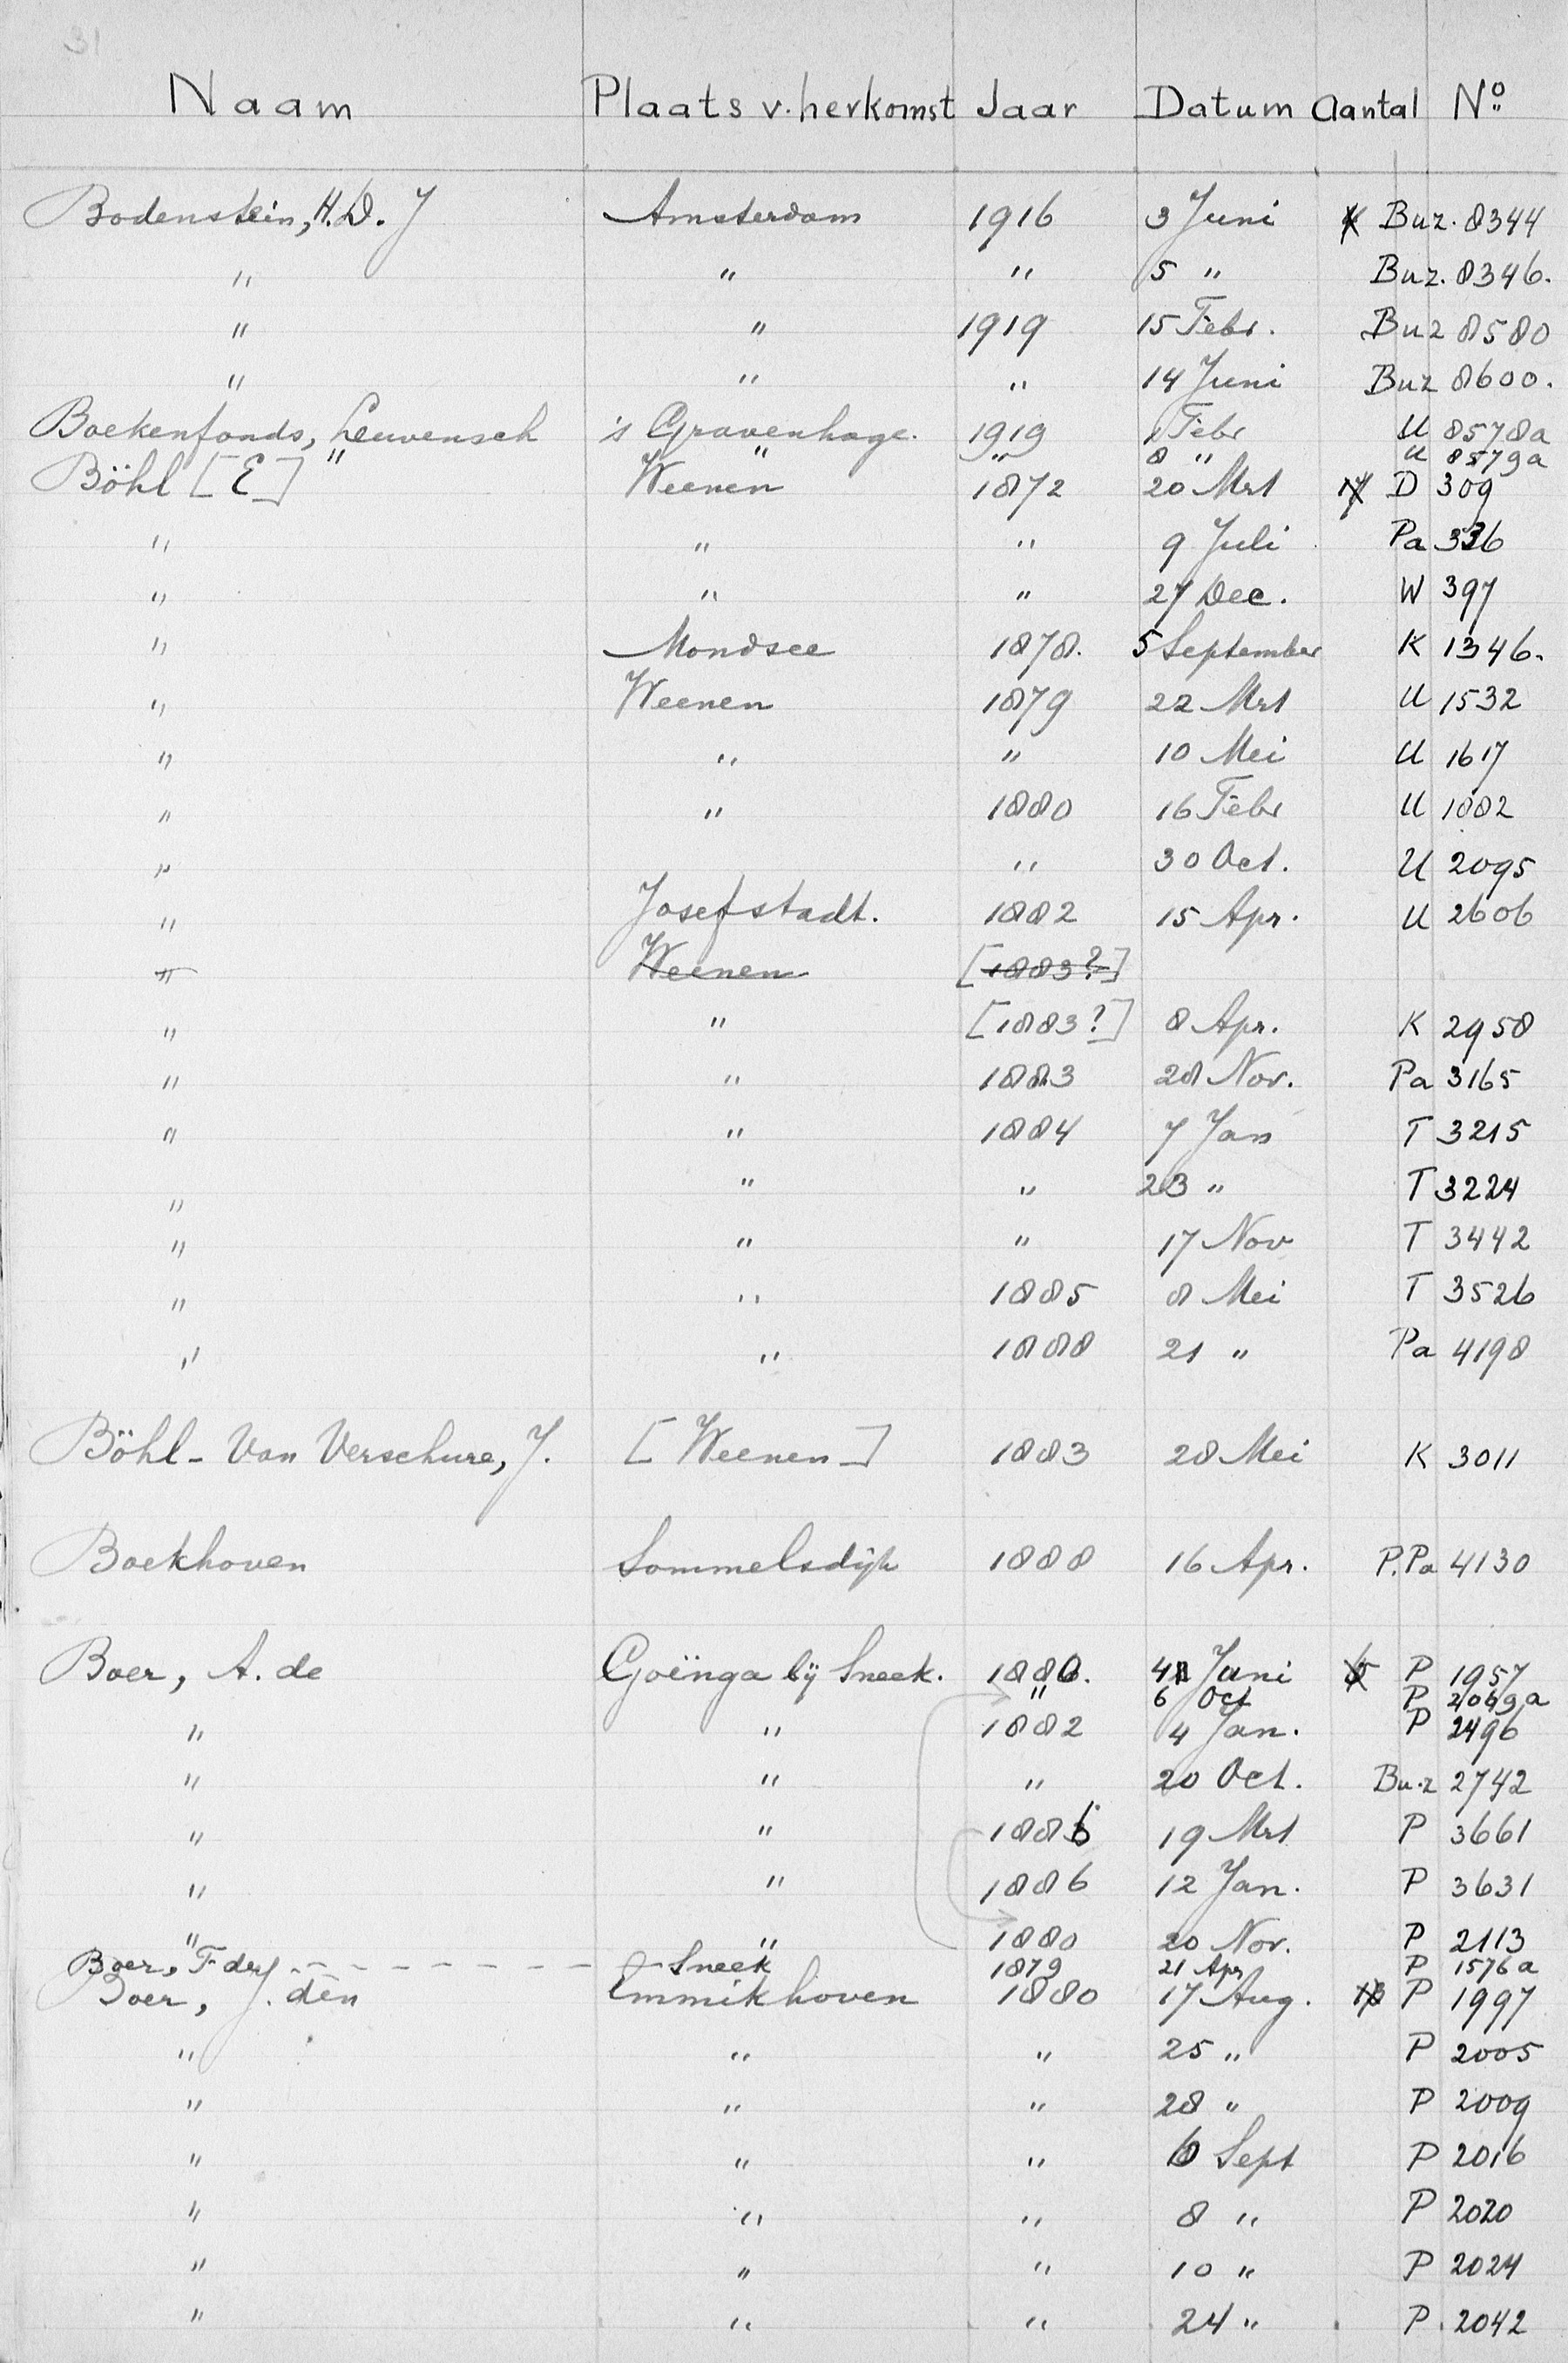 31
Naam Plaats v. herkomst Jaar Datum Aantal Nº
Bodenstein, H.D. J Amsterdam 1916 3 Juni Buz. 8344
" " " 5 " Buz. 8346.
" " 1919 15 Febr. Buz 8580
" " " 14 Juni Buz 8600.
Boekenfonds, Leuvensch 's Gravenhage. 1919 1 Febr U 8578a
" " " 8 " U 8579a
Böhl [E] Weenen 1872 20 Mrt D 309
" " " 9 Juli Pa 336
" " " 27 Dec. W 397
" Mondsee 1878. 5 September K 1346.
" Weenen 1879 22 Mrt U 1532
" " " 10 Mei U 1617
" " 1880 16 Febr U 1882
" " 30 Oct. U 2095
" Josefstadt. 1882 15 Apr. U 2606
" Weenen [1883?]
" " [1883?] 8 Apr. K 2958
" " 1883 28 Nov. Pa 3165
" " 1884 7 Jan T 3215
" " " 23 " T 3224
" " " 17 Nov T 3442
" " 1885 8 Mei T 3526
" " 1888 21 " Pa 4198
Böhl - Van Verschure, J. [Weenen] 1883 28 Mei K 3011
Boekhoven Sommelsdijk 1888 16 Apr. P.Pa 4130
Boer, A. de Goënga bij Sneek. 1880. Juni P 1957
" 6 Oct P 2049a
" " 1882 4 Jan. P 2496
" " " 20 Oct. Bu.z 2742
" " 1886 19 Mrt P 3661
" " 1886 12 Jan. P 3631
" " 1880 20 Nov. P 2113
Boer, F. de - - - - - - - - Sneek 1879 21 Apr P 1576a
Boer, J. den Emmikhoven 1880 17 Aug. P 1997
" " " 25 " P 2005
" " " 28 " P 2009
" " " 6 Sept P 2016
" " " 8 " P 2020
" " " 10 " P 2024
" " " 24 " P. 2042